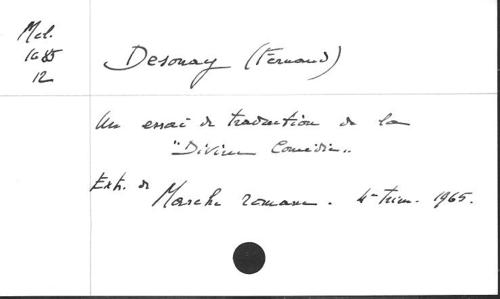 Mel.
1085
12
Desonay (Fernand)
Un essai de traduction de la
"Divine Comédie".
Extr. de
Marche romane. 4e trim. 1965.